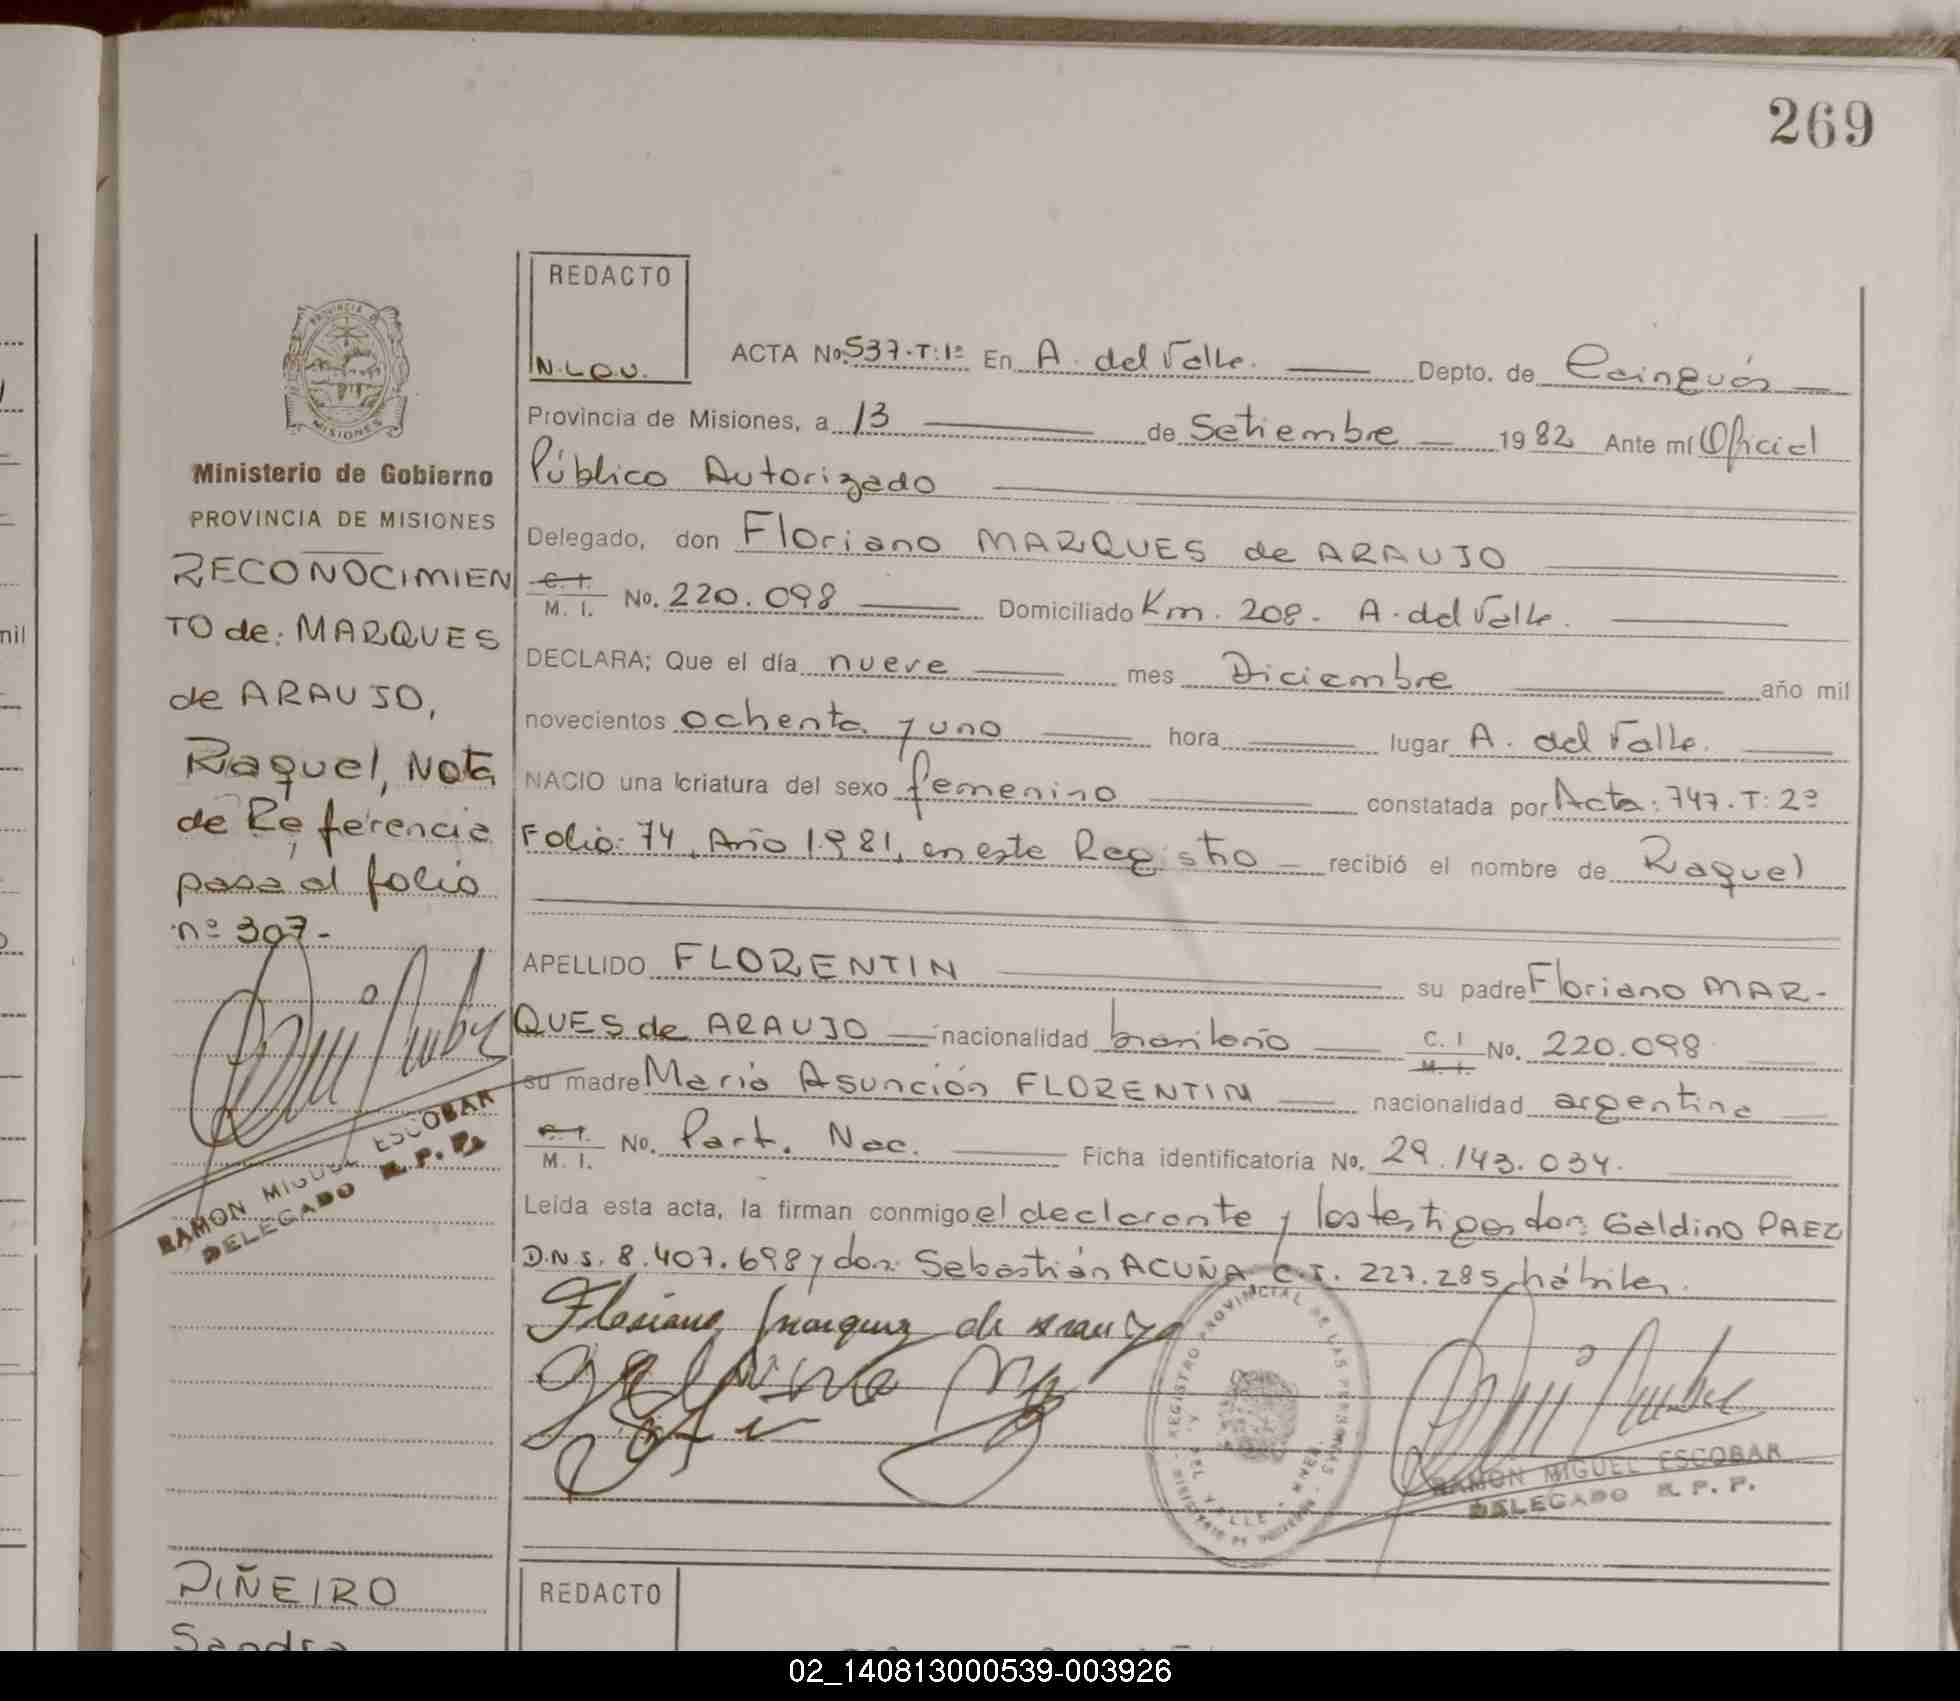 269
REDACTO
N.L.O.U.
ACTA No. 537.T:1º En A. del Valle. Depto. de Cainguás
Provincia de Misiones, a 13 de Setiembre 1982 Ante mí Oficial
Público Autorizado
Delegado, don Floriano MARQUES de ARAUJO
C. I. M. I. No. 220.098 Domiciliado Km. 208. A. del Valle.
DECLARA; Que el día nueve mes Diciembre año mil
novecientos ochenta y uno hora lugar A. del Valle.
NACIO una criatura del sexo femenino constatada por Acta: 747. T: 2º
Folio: 74, Año 1981, en este Registro recibió el nombre de Raquel
APELLIDO FLORENTIN su padre Floriano MAR-
QUES de ARAUJO nacionalidad brasileño C. I M. I. No. 220.098
su madre María Asunción FLORENTIN nacionalidad argentina
C. I. M. I. No. Part. Nac. Ficha identificatoria No. 29.143.034.
Leída esta acta, la firman conmigo el declarante y los testigos don: Galdino PAEZ
D.N.I. 8.407.698 y don: Sebastián ACUÑA, C.I. 227.285, hábiles.
Floriano Marquez de Araujo
REGISTRO PROVINCIAL DE LAS PERSONAS
RAMON MIGUEL ESCOBAR
DELEGADO R. P. P.
PROVINCIA D
MISIONES
Ministerio de Gobierno
PROVINCIA DE MISIONES
RECONOCIMIEN
TO de: MARQUES
de ARAUJO,
Raquel, Nota
de Referencia
pasa al folio
nº 307-
RAMON MIGUEL ESCOBAR
DELEGADO R. P. P.
PIÑEIRO
Sandra
REDACTO
mil
02_140813000539-003926